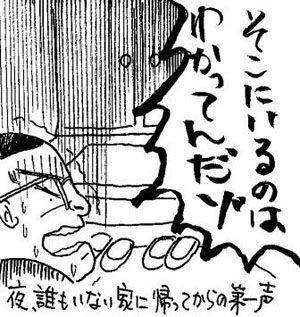 そこにいるのは
わかってんだゾ
夜、誰もいない家に帰ってからの第一声